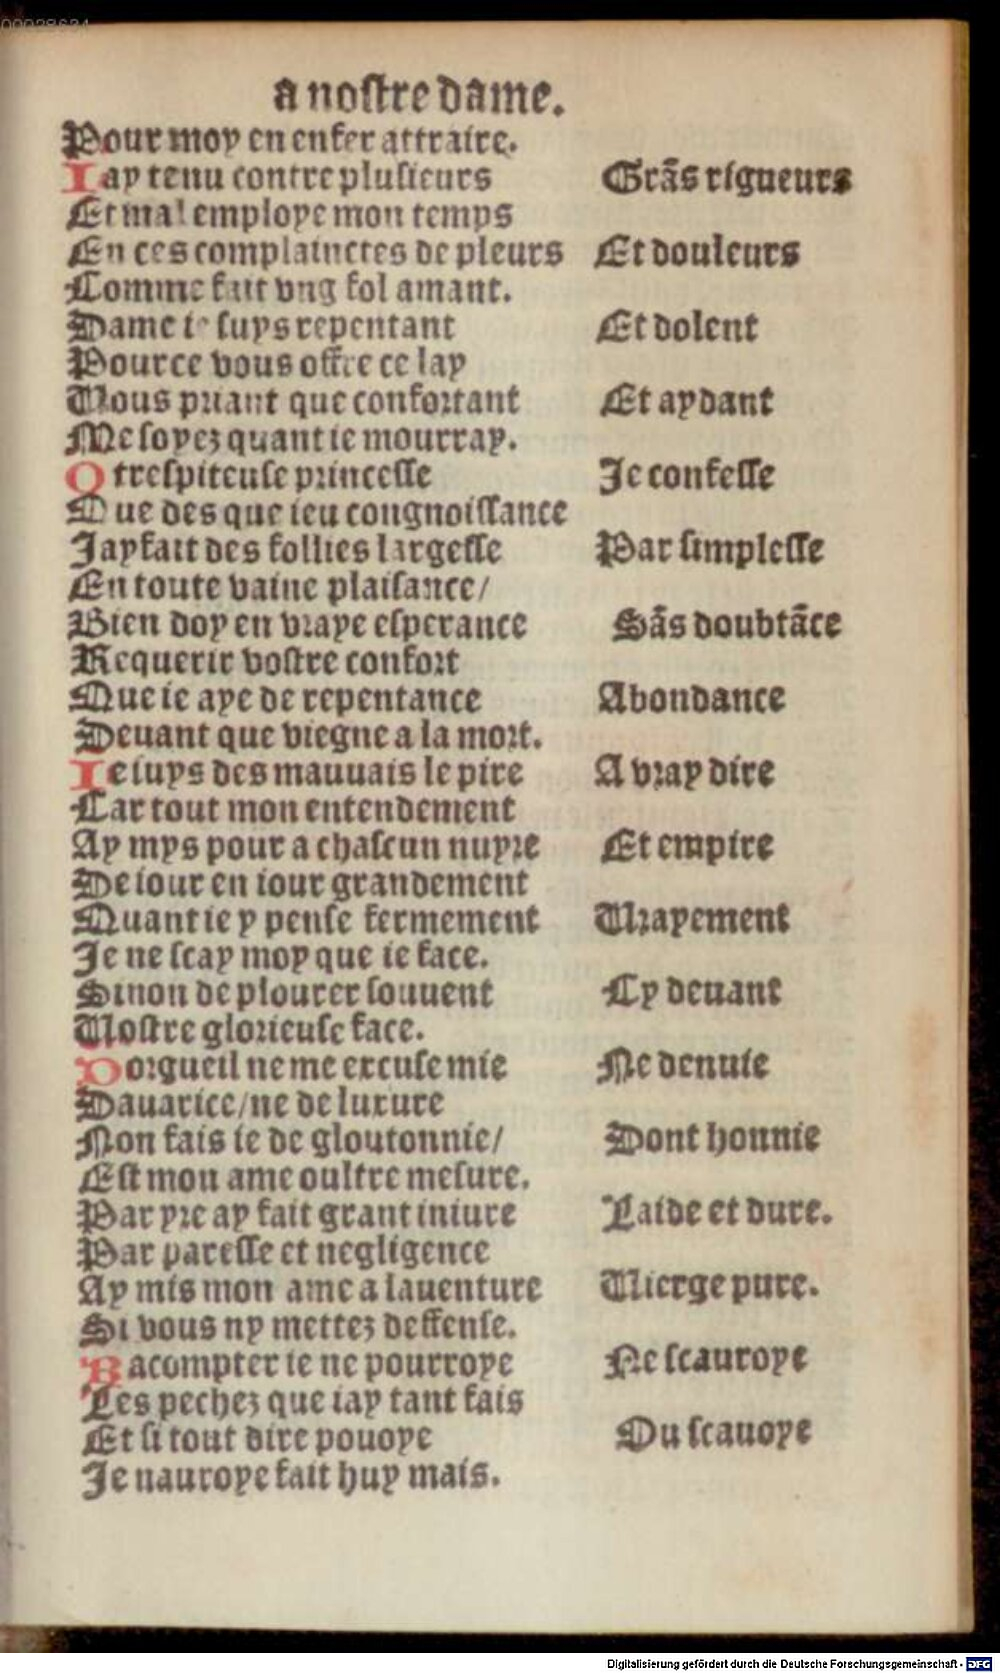 00028634
a nostre dame.
Pour moy en enfer attraire.
Iay tenu contre plusieurs Grãs rigueurs
Et mal employe mon temps
En ces complainctes de pleurs Et douleurs
Comme fait vng fol amant.
Dame ie suys repentant Et dolent
Pource vous offre ce lay
Vous priant que confortant Et aydant
Me soyez quant ie mourray.
O trespiteuse princesse Je confesse
Que des que ieu congnoissance
Jay fait des follies largesse Par simplesse
En toute vaine plaisance/
Bien doy en vraye esperance Sãs doubtãce
Requerir vostre confort
Que ie aye de repentance Abondance
Deuant que viegne a la mort.
Ie suys des mauuais le pire A vray dire
Car tout mon entendement
Ay mys pour a chascun nuyre Et empire
De iour en iour grandement
Quant ie y pense fermement Vrayement
Je ne scay moy que ie face.
Sinon de plourer souuent Cy deuant
Vostre glorieuse face.
Dorgueil ne me excuse mie Ne denuie
Dauarice/ne de luxure
Non fais ie de gloutonnie/ Dont honnie
Est mon ame oultre mesure.
Par yre ay fait grant iniure Laide et dure.
Par paresse et negligence
Ay mis mon ame a lauenture Vierge pure.
Si vous ny mettez deffense.
Racompter ie ne pourroye Ne scauroye
Les pechez que iay tant fais
Et si tout dire pouoye Ou scauoye
Je nauroye fait huy mais.
Digitalisierung gefördert durch die Deutsche Forschungsgemeinschaft - DFG